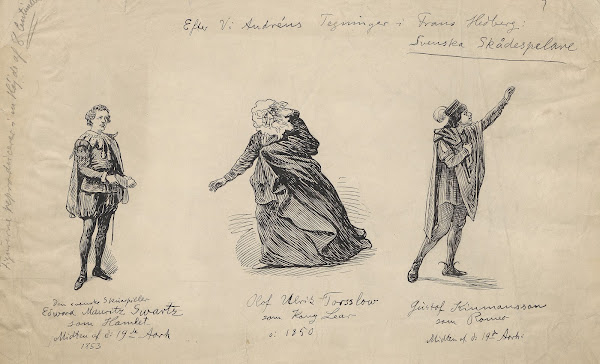 Efter V. Andréns Tegninger i Frans Hedberg:
Svenska Skådespelare
Den svenske Skuespiller
Edvard Mauritz Swartz
som Hamlet
Midten af d: 19de Aarh
1853
Olof Ulrik Torsslow
som Kong Lear
c: 1850
Gustof Kinmansson
som Romeo
Midten af d: 19de Aarh: